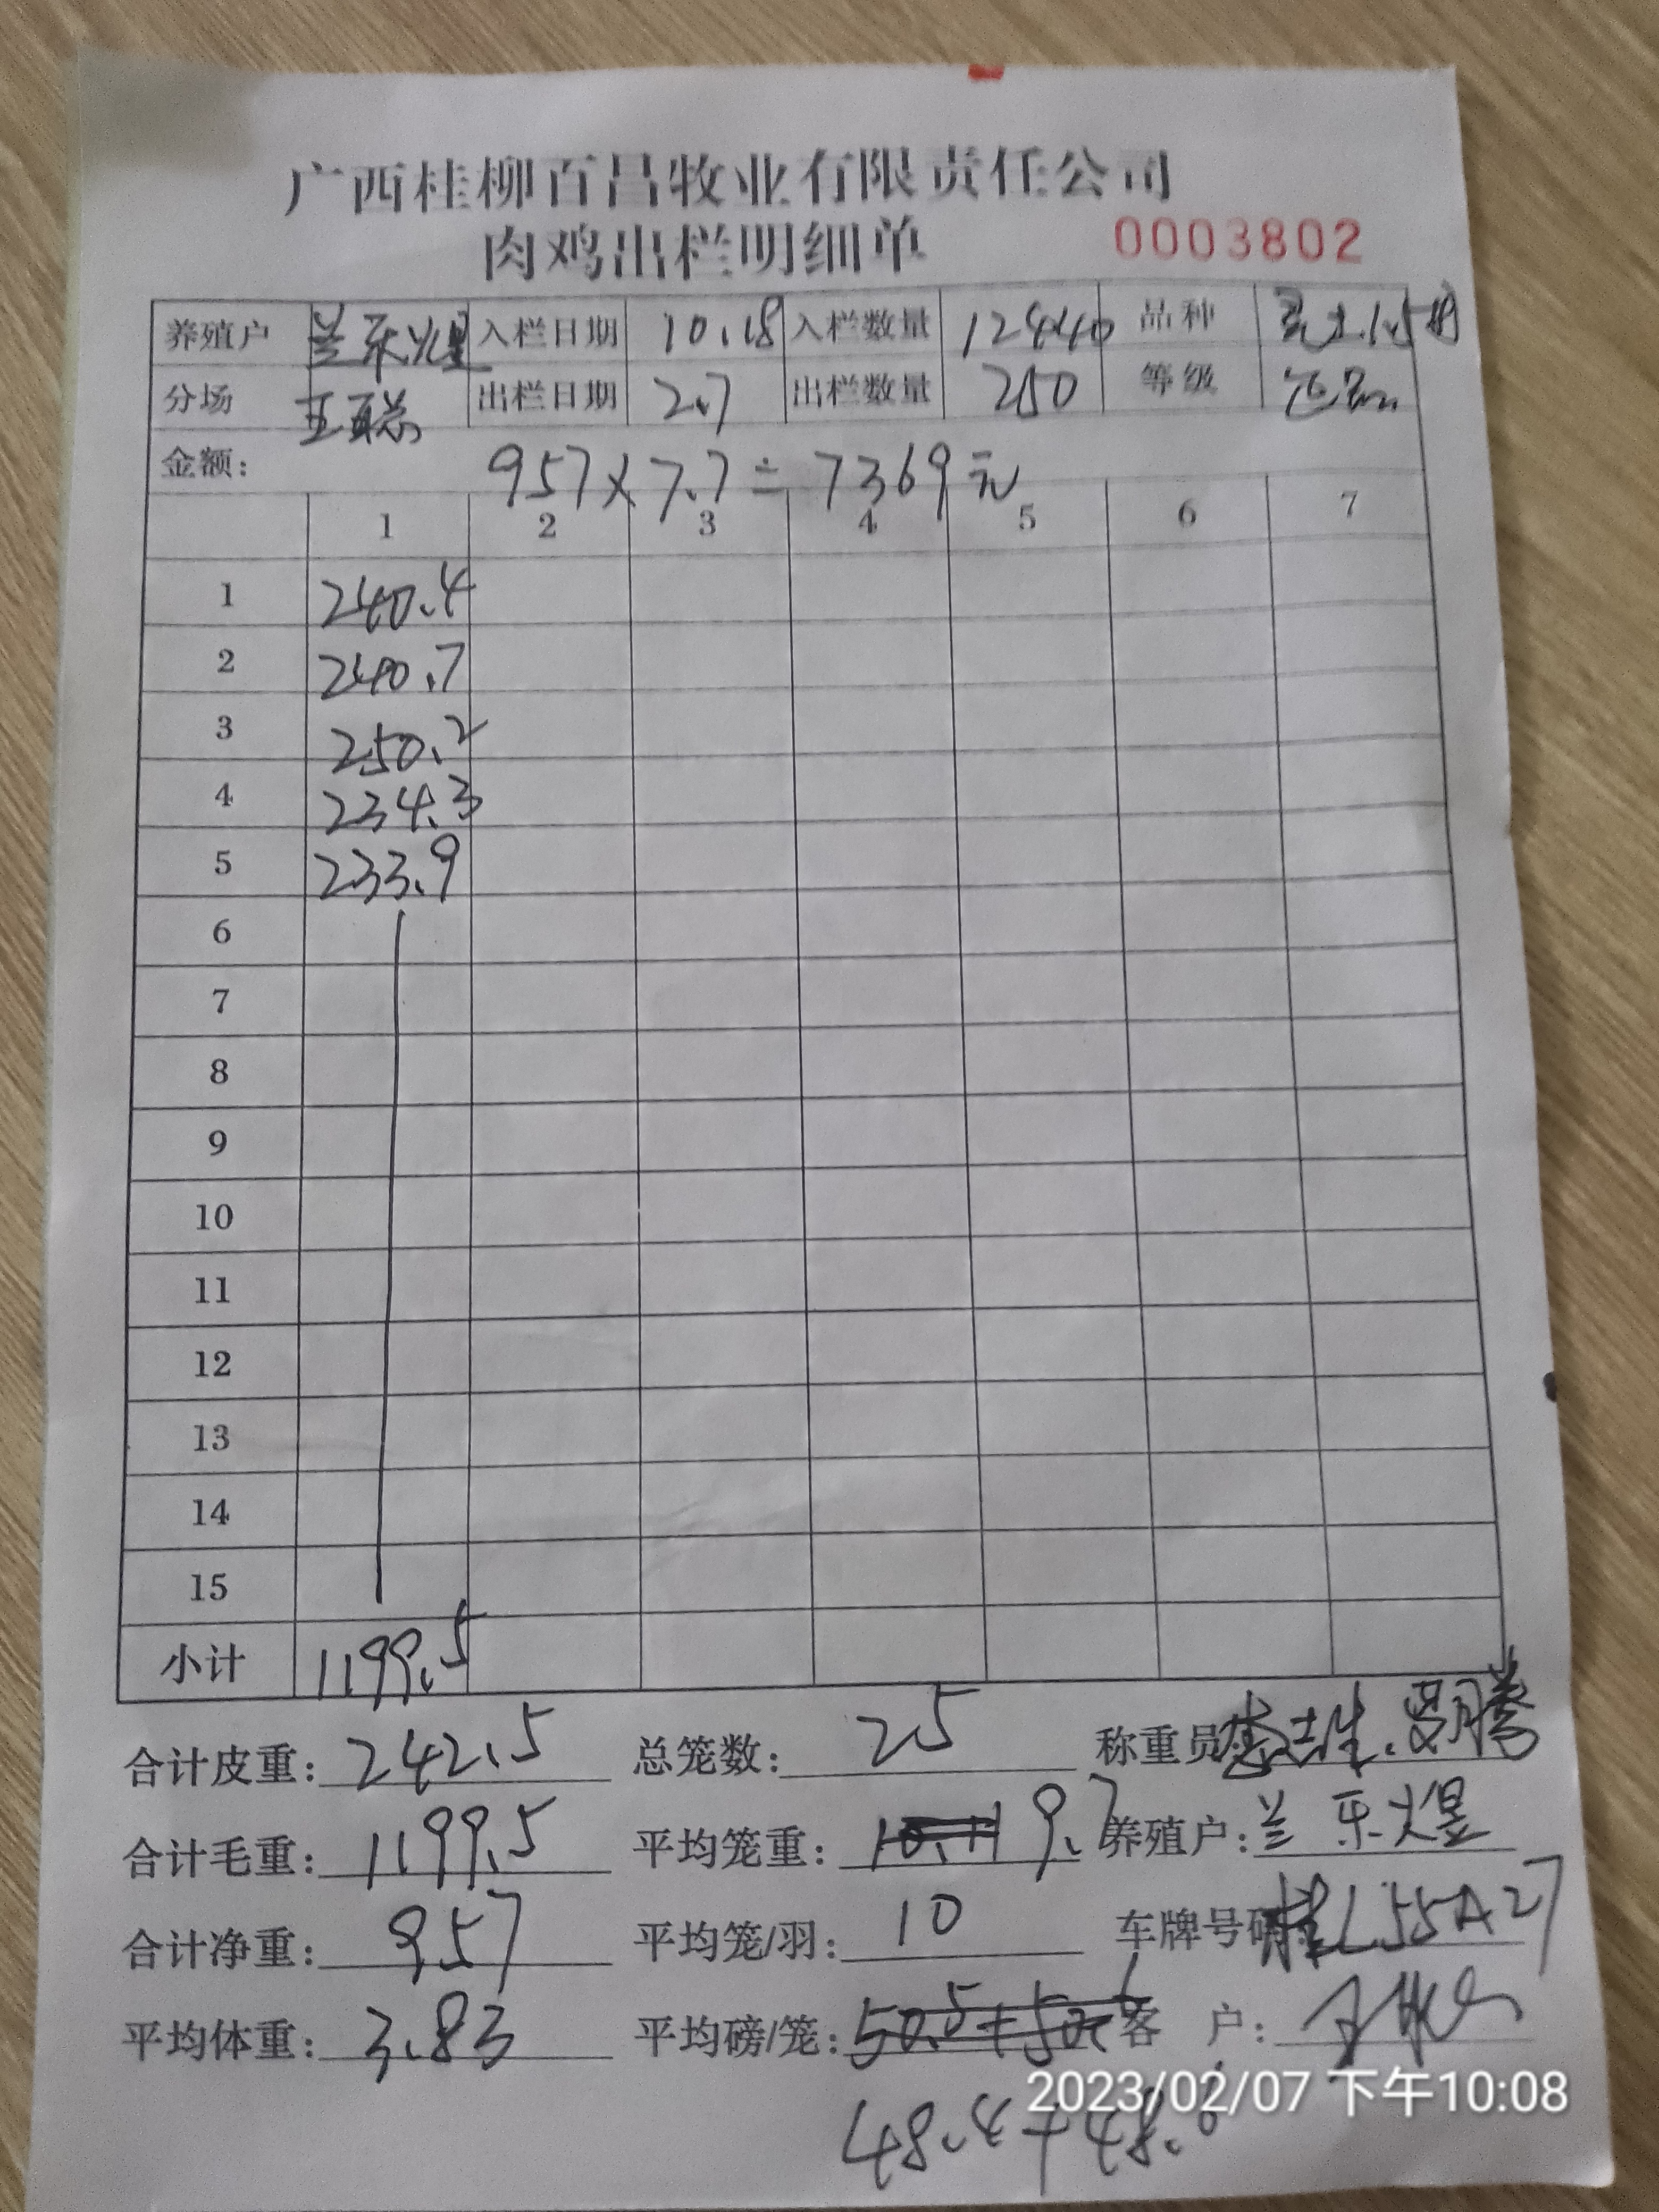 广西桂柳百昌牧业有限责任公司
肉鸡出栏明细单 0003802
养殖户 兰乐煜 入栏日期 10.18 入栏数量 12440 品种
分场 出栏日期 2.7 出栏数量 250 等级
金额: 957×7.7=7369元
1 2 3 4 5 6 7
1 240.4
2 240.7
3 250.2
4 234.3
5 233.9
6
7
8
9
10
11
12
13
14
15
小计 1199.5
合计皮重: 242.5 总笼数: 25 称重员
合计毛重: 1199.5 平均笼重: 9.7 养殖户: 兰乐煜
合计净重: 957 平均笼/羽: 10 车牌号码 桂L55A27
平均体重: 3.83 平均磅/笼: 50.5+50. 客 户:
2023/02/07 下午10:08
48.4+48.6